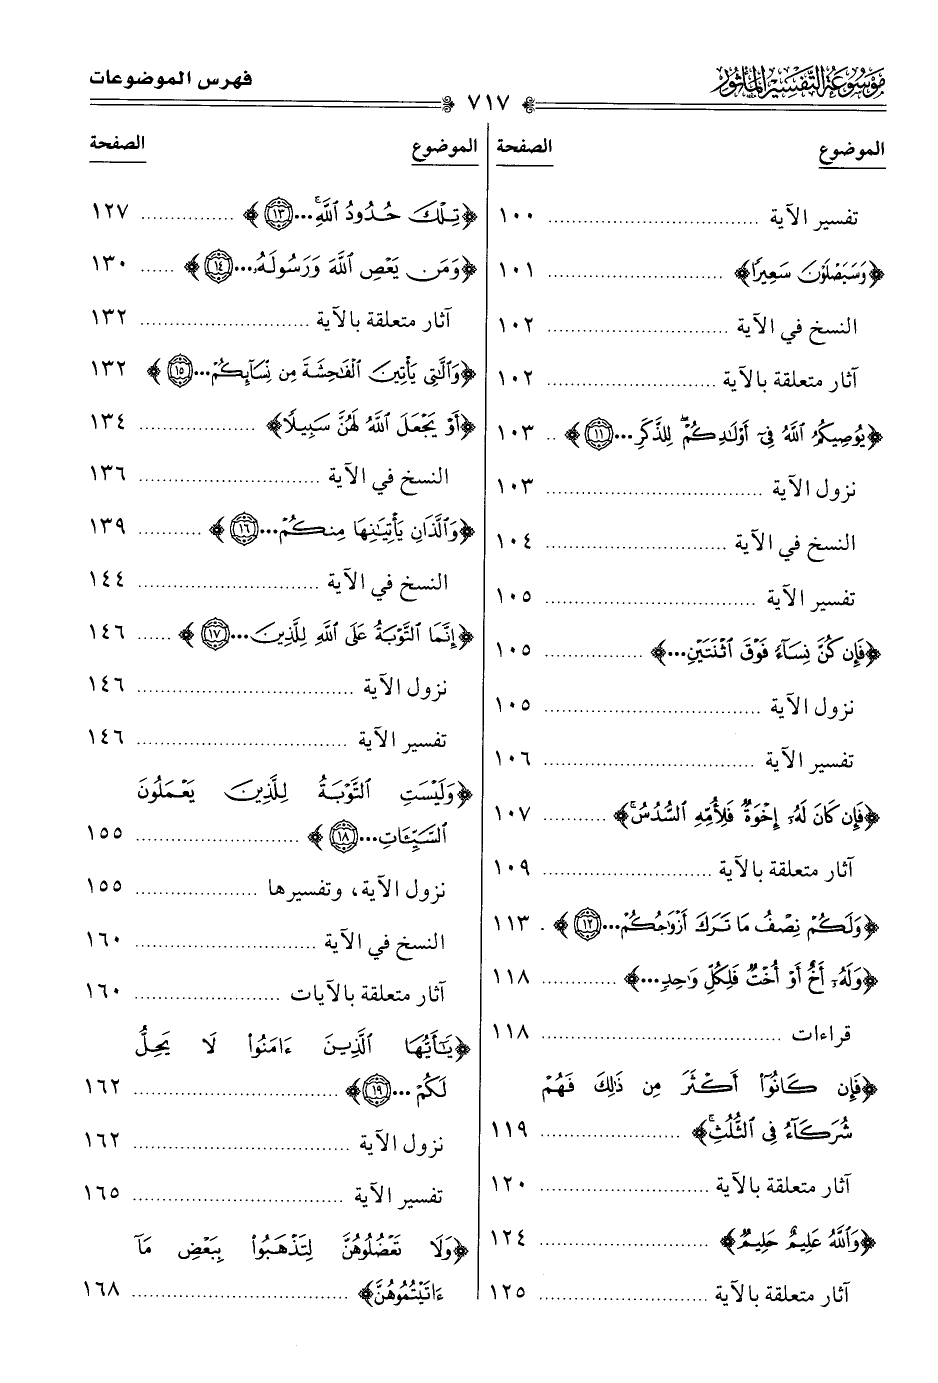 موسوعة التفسير المأثور
٧١٧
فهرس الموضوعات
الموضوع الصفحة
تفسير الآية ١٠٠
﴿وَسَيَصْلَوْنَ سَعِيرًا﴾ ١٠١
النسخ في الآية ١٠٢
آثار متعلقة بالآية ١٠٢
﴿يُوصِيكُمُ ٱللَّهُ فِىٓ أَوْلَـٰدِكُمْ ۖ لِلذَّكَرِ... ١١﴾ ١٠٣
نزول الآية ١٠٣
النسخ في الآية ١٠٤
تفسير الآية ١٠٥
﴿فَإِن كُنَّ نِسَآءً فَوْقَ ٱثْنَتَيْنِ...﴾ ١٠٥
نزول الآية ١٠٥
تفسير الآية ١٠٦
﴿فَإِن كَانَ لَهُۥٓ إِخْوَةٌ فَلِأُمِّهِ ٱلسُّدُسُ ۚ﴾ ١٠٧
آثار متعلقة بالآية ١٠٩
﴿وَلَكُمْ نِصْفُ مَا تَرَكَ أَزْوَٰجُكُمْ... ١٢﴾ ١١٣
﴿وَلَهُۥٓ أَخٌ أَوْ أُخْتٌ فَلِكُلِّ وَٰحِدٍ...﴾ ١١٨
قراءات ١١٨
﴿فَإِن كَانُوٓا۟ أَكْثَرَ مِن ذَٰلِكَ فَهُمْ
شُرَكَآءُ فِى ٱلثُّلُثِ ۚ﴾ ١١٩
آثار متعلقة بالآية ١٢٠
﴿وَٱللَّهُ عَلِيمٌ حَلِيمٌ﴾ ١٢٤
آثار متعلقة بالآية ١٢٥
الموضوع الصفحة
﴿تِلْكَ حُدُودُ ٱللَّهِ ۚ... ١٣﴾ ١٢٧
﴿وَمَن يَعْصِ ٱللَّهَ وَرَسُولَهُۥ... ١٤﴾ ١٣٠
آثار متعلقة بالآية ١٣٢
﴿وَٱلَّـٰتِى يَأْتِينَ ٱلْفَـٰحِشَةَ مِن نِّسَآئِكُمْ... ١٥﴾ ١٣٢
﴿أَوْ يَجْعَلَ ٱللَّهُ لَهُنَّ سَبِيلًا﴾ ١٣٤
النسخ في الآية ١٣٦
﴿وَٱلَّذَانِ يَأْتِيَـٰنِهَا مِنكُمْ... ١٦﴾ ١٣٩
النسخ في الآية ١٤٤
﴿إِنَّمَا ٱلتَّوْبَةُ عَلَى ٱللَّهِ لِلَّذِينَ... ١٧﴾ ١٤٦
نزول الآية ١٤٦
تفسير الآية ١٤٦
﴿وَلَيْسَتِ ٱلتَّوْبَةُ لِلَّذِينَ يَعْمَلُونَ
ٱلسَّيِّـَٔاتِ... ١٨﴾ ١٥٥
نزول الآية، وتفسيرها ١٥٥
النسخ في الآية ١٦٠
آثار متعلقة بالآيات ١٦٠
﴿يَـٰٓأَيُّهَا ٱلَّذِينَ ءَامَنُوا۟ لَا يَحِلُّ
لَكُمْ... ١٩﴾ ١٦٢
نزول الآية ١٦٢
تفسير الآية ١٦٥
﴿وَلَا تَعْضُلُوهُنَّ لِتَذْهَبُوا۟ بِبَعْضِ مَآ
ءَاتَيْتُمُوهُنَّ﴾ ١٦٨